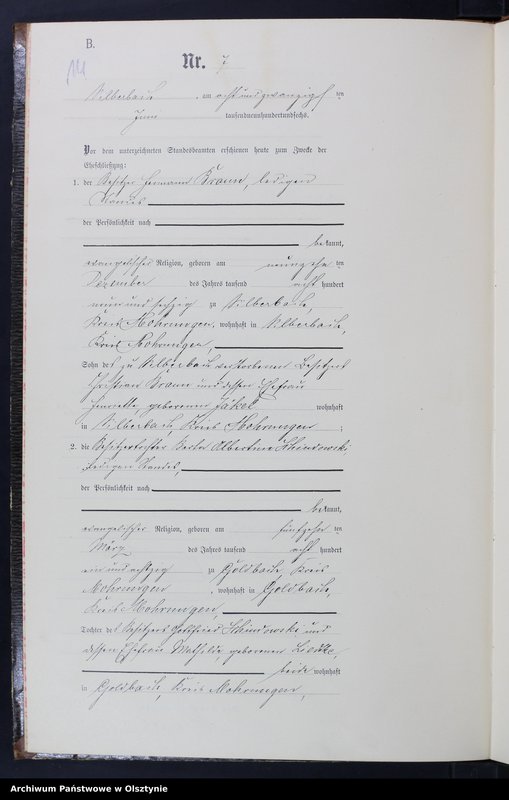 B.
Nr. 7
Silberbach, am acht und zwanzigsten
Juni tausendneunhundertundsechs.
Vor dem unterzeichneten Standesbeamten erschienen heute zum Zwecke der
Eheschließung:
1. der Besitzer Hermann Braun, ledigen
Standes
der Persönlichkeit nach
bekannt,
evangelischer Religion, geboren am neunzehnten
Dezember des Jahres tausend acht hundert
neun und sechzig zu Silberbach,
Kreis Mohrungen, wohnhaft in Silberbach,
Kreis Mohrungen,
Sohn des zu Silberbach verstorbenen Besitzers
Christian Braun und dessen Ehefrau
Henriette, geborenen Jäkel wohnhaft
in Silberbach, Kreis Mohrungen ;
2. die Besitzertochter Bertha Albertine Schindowski,
ledigen Standes,
der Persönlichkeit nach
bekannt,
evangelischer Religion, geboren am fünfzehnten
März des Jahres tausend acht hundert
ein und achtzig zu Goldbach, Kreis
Mohrungen, wohnhaft in Goldbach,
Kreis Mohrungen,
Tochter des Besitzers Gottfried Schindowski und
dessen Ehefrau Mathilde, geborenen
beide wohnhaft
in Goldbach, Kreis Mohrungen,
Archiwum Państwowe w Olsztynie